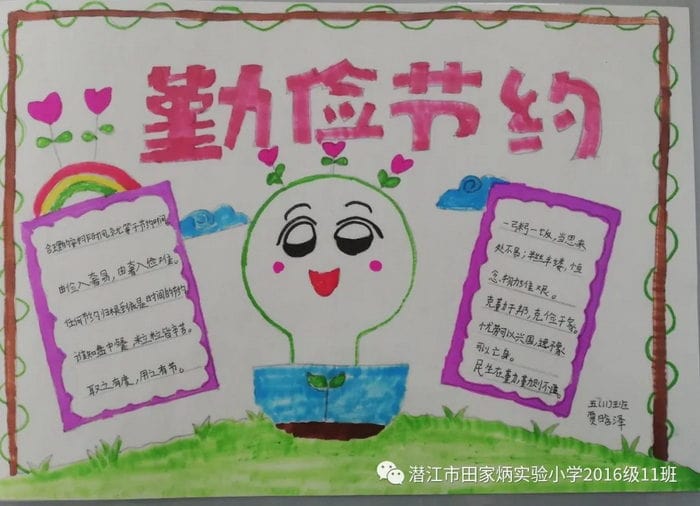 勤俭节约
合理安排时间,就等于节约时间。
由俭入奢易,由奢入俭难。
任何节约归根到底是时间的节约
谁知盘中餐,粒粒皆辛苦。
取之有度,用之有节。
一粥一饭,当思来
处不易;半丝半缕,恒
念物力维艰。
克勤于邦,克俭于家。
忧劳可以兴国,逸豫
可以亡身。
民生在勤,勤则不匮。
五(11)班
潜江市田家炳实验小学2016级11班